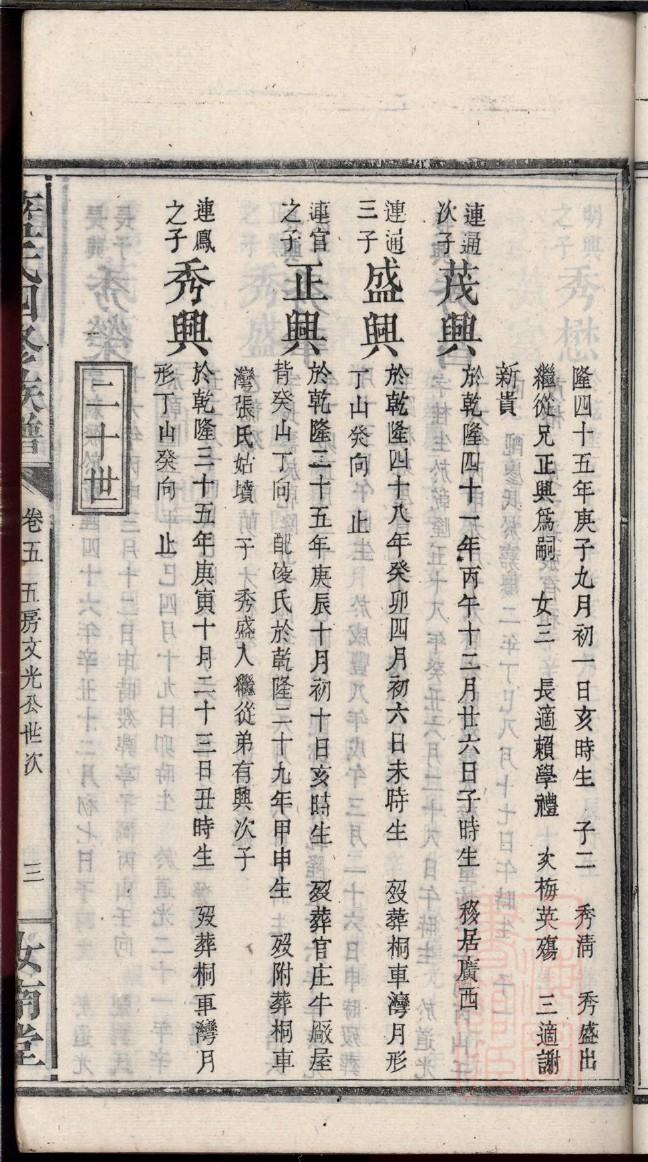 隆四十五年庚子九月初一日亥時生　子二　秀清　秀盛出
繼從兄正興爲嗣　女三　長適賴學禮　次梅英殤　三適謝
新貴
連通次子　茂興　於乾隆四十一年丙午十二月廿六日子時生　移居廣西
連通三子　盛興　於乾隆四十八年癸卯四月初六日未時生　歿葬桐車灣月形
丁山癸向　止
連官之子　正興　於乾隆二十五年庚辰十月初十日亥時生　歿葬官庄牛厰屋
背癸山丁向　配凌氏於乾隆二十九年甲申生　歿附葬桐車
灣張氏姑墳　子　秀盛入繼從弟有興次子
連鳳之子　秀興　於乾隆三十五年庚寅十月二十三日丑時生　歿葬桐車灣月
形丁山癸向　止
二十世
氏四修族譜　卷五　五房文光公世次　三　汝南堂